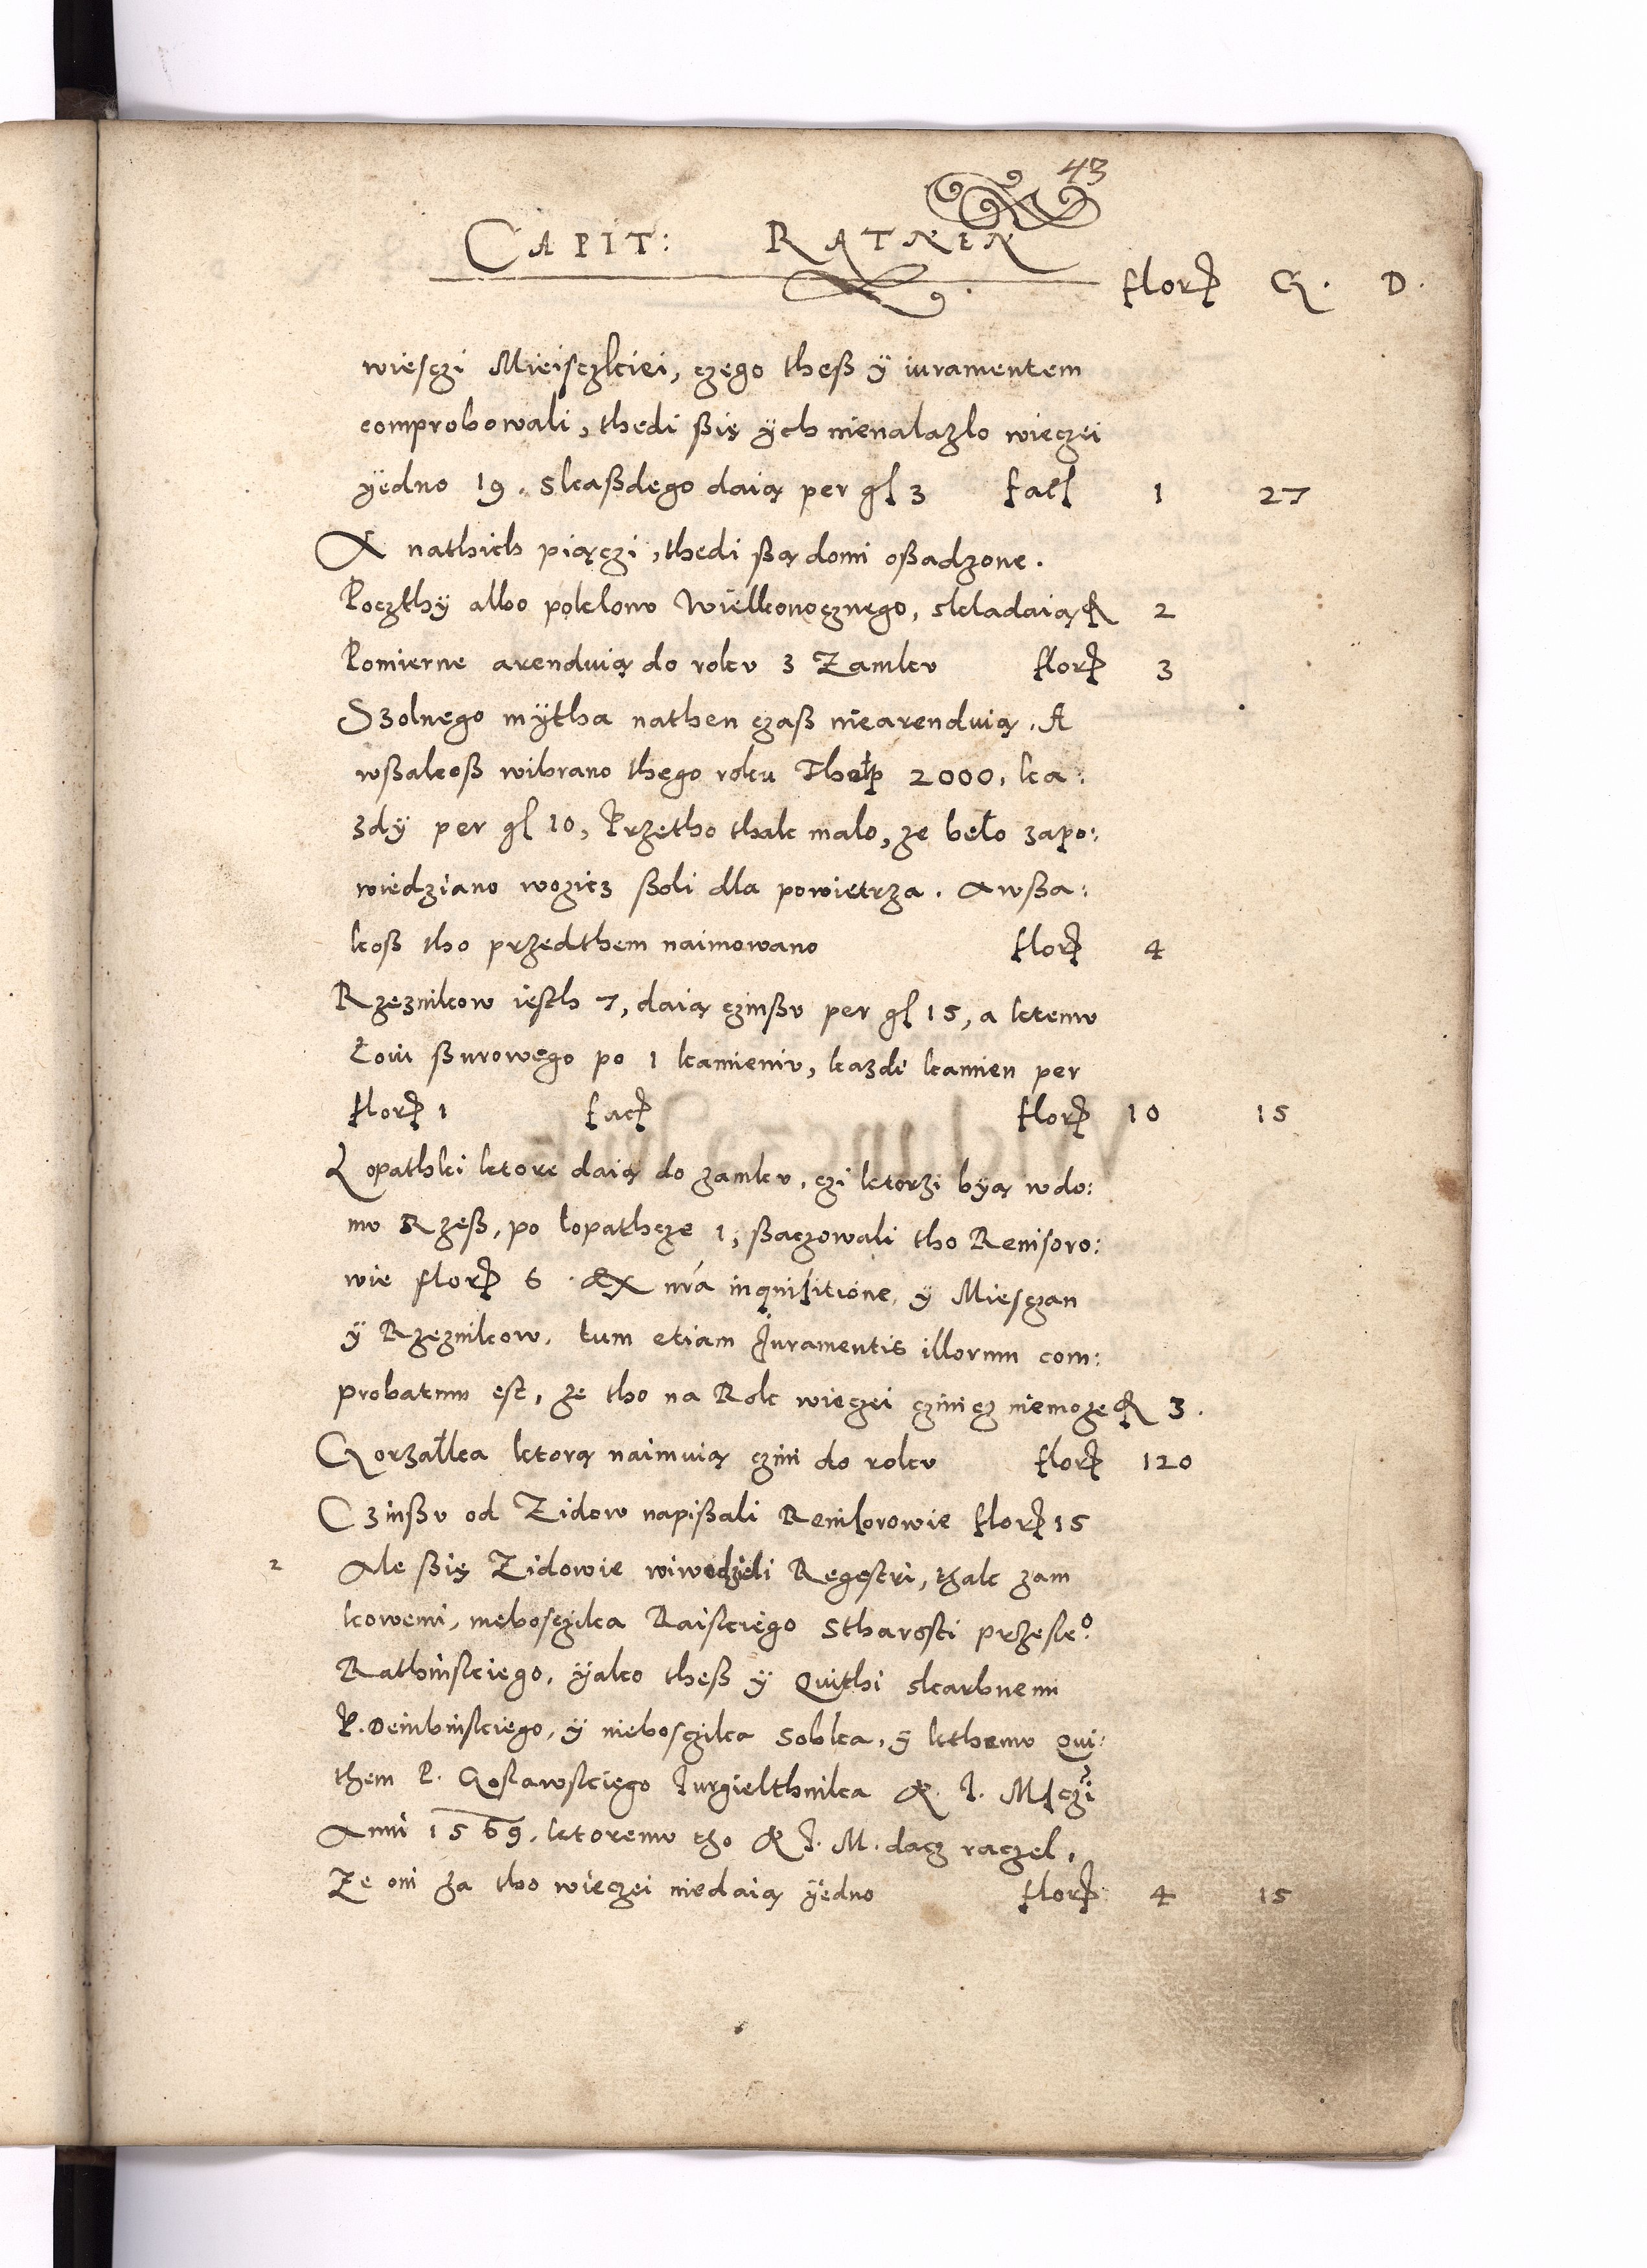 43
CAPIT: RATNEN
flor G. D.
wiesczi Mieisczkiei, czego theß ÿ iuramentem
comprobowali, thedi ßię ÿch nienalazlo wieczei
ÿedno 19. skaßdego daią per gl 3 fact 1 27
A nathich pięczi, thedi ßą domi oßadzone.
Poczthÿ albo poklonv Wielkonocznego, skladaią fl 2
Pomierne arenduią do rokv z Zamkv flor 3
Szolnego mÿtha nathen czaß niearenduią. A
wßakoß wibrano thego roku Tholp 2000, ka:
zdÿ per gl 10, Przetho thak malo, ze beło zapo:
wiedziano wozicz ßoli dla powietrza. Awßa:
koß tho przedthem naimowano flor 4
Rzeznikow iesth 7, daią czinßv per gl 15, a ktemv
Łoiu ßurowego po 1 kamieniv, kazdi kamien per
flor 1 fact flor 10 15
Łopathki ktore daią do zamkv, czi ktorzi biyą wdo:
mv Rzeß, po łopathcze 1, ßaczowali tho Revisoro:
wie flor 6 Ex nra inquisitione, ÿ Miesczan
ÿ Rzeznikow, tum etiam Juramentis illorum com:
probatum est, ze tho na Rok wieczei czinicz niemoze fl 3.
Gorzałka ktorą naimuią czini do rokv flor 120
Czinßv od Zidow napißali Revisorowie flor 15
2 Ale ßię Zidowie wiwodzili Regestri, thak zam
kowemi, nieboszika Raiskiego Stharosti przesłeo
Rathinskiego, ÿako theß ÿ Quithi skarbnemi
P. Dembinskiego, ÿ nieboszika Sobka, ÿ kthemv Qui:
them P. Goslawskiego Jurgielthnika K. J. Msczi
Anni 1569, ktoremv tho K J. M. dacz raczel,
Ze oni za tho wieczei niedaią ÿedno flor 4 15